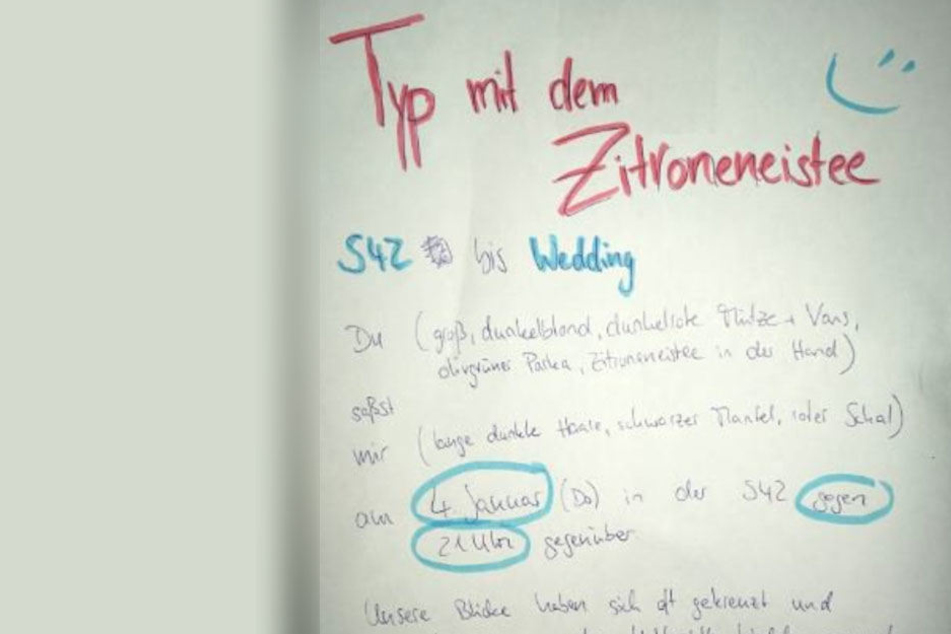 Typ mit dem
Zitroneneistee
S42 bis Wedding
Du (groß, dunkelblond, dunkelrote Mütze + Vans,
olivgrüner Parka, Zitroneneistee in der Hand)
saßst
mir (lange dunkle Haare, schwarzer Mantel, roter Schal)
am 4. Januar (Do) in der S42 gegen
21 Uhr gegenüber
Unsere Blicke haben sich oft gekreuzt und